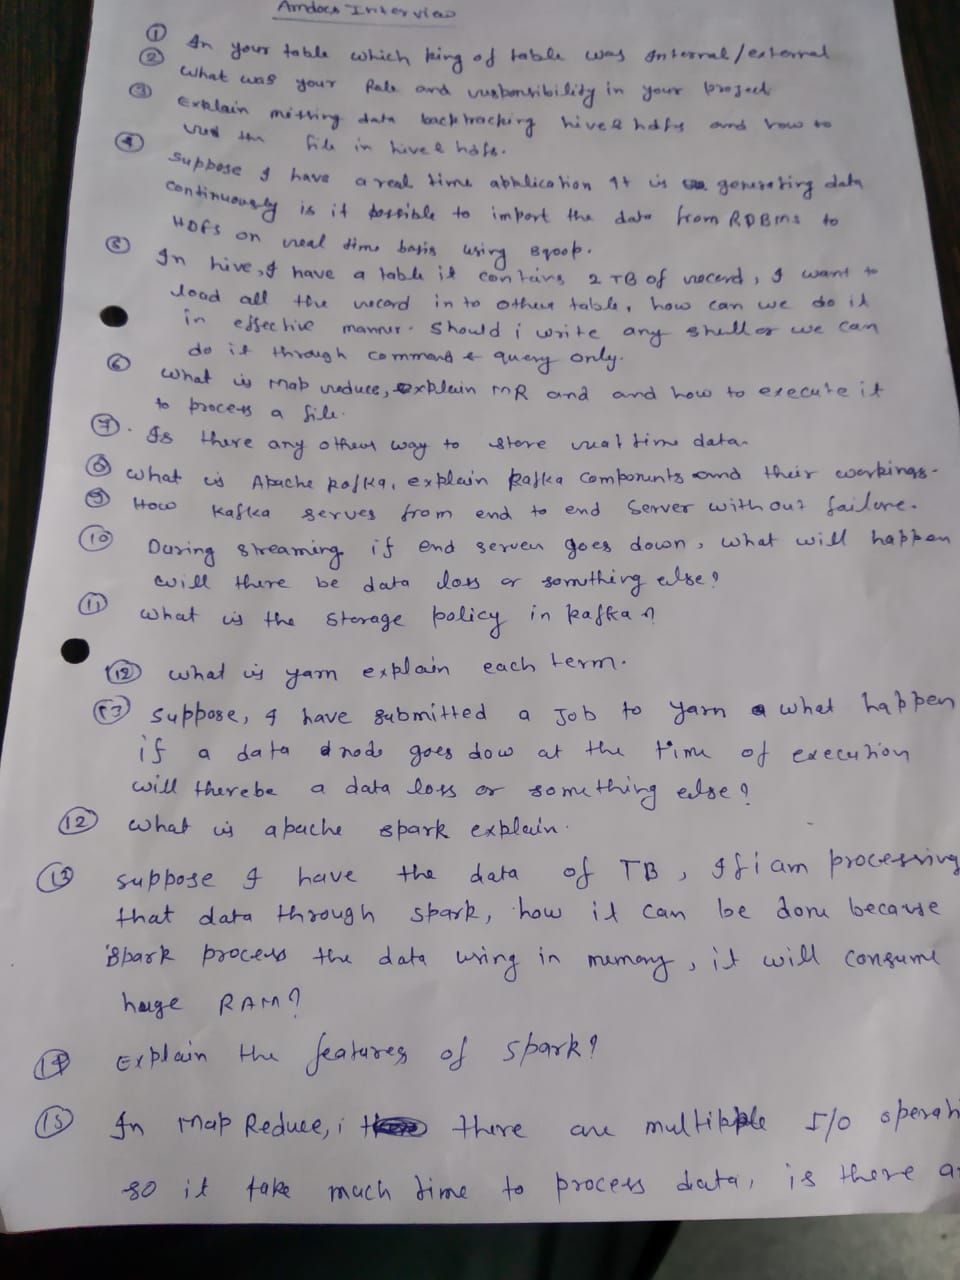 Amdocs Interview
① In your table which king of table was Internal/external
② What was your Role and responsibility in your project
③ Explain missing data backtracking hive & hdfs and how to
use the file in hive & hdfs.
④ Suppose I have a real time application It is generating data
continuously is it possible to import the data from RDBMS to
HDFS on real time basis using sqoop.
⑤ In hive, I have a table it contains 2 TB of record, I want to
load all the record in to other table, how can we do it
in effective manner. Should i write any shell or we can
do it through command & query only.
⑥ What is map reduce, explain MR and and how to execute it
to process a file.
⑦. Is there any other way to store real time data.
⑧ What is Apache kafka, explain kafka components and their workings.
⑨ How kafka serves from end to end server without failure.
⑩ During streaming if end server goes down, what will happen
will there be data loss or something else?
⑪ What is the storage policy in kafka?
⑫ what is yarn explain each term.
⑬ Suppose, I have submitted a Job to yarn what happen
if a data node goes dow at the time of execution
will therebe a data loss or something else?
⑫ what is apache spark explain.
⑬ suppose I have the data of TB, If i am processing
that data through spark, how it can be done because
spark process the data using in memory, it will consume
huge RAM?
⑭ Explain the features of spark?
⑮ In Map Reduce, i there are multiple I/O operati
so it take much time to process data, is there a